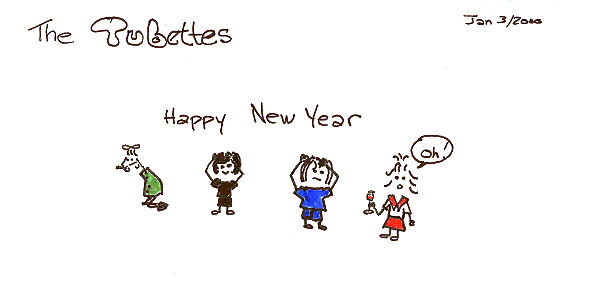 The Tubettes
Jan 3/2000
Happy New Year
Oh!